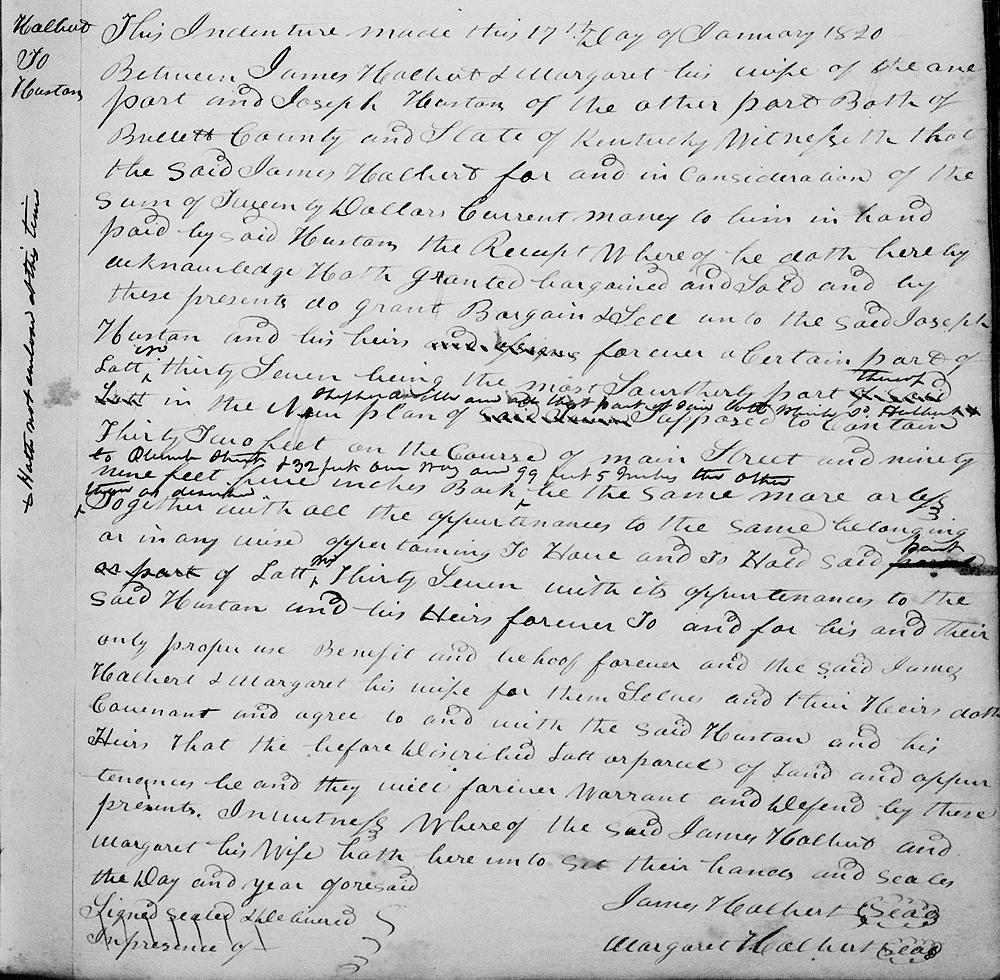 Halbert
To
Hustan
This Indenture made this 17th Day of January 1820
Between James Halbert & Margaret his wife of the one
part and Joseph Hustan of the other part Both of
Bullett County and State of Kentucky Witnesseth that
the Said James Halbert for and in Consideration of the
Sum of Twenty Dollars Current money to him in hand
paid by said Hustan the Receipt Whereof he doth here by
acknowledge Hath granted bargained and Sold and by
these presents do grant Bargain & Sell unto the said Joseph
Hustan and his heirs and assigns forever a Certain part of
Lott No thirty Seven being the most Southerly part thereof
Lott in the New plan of Supposed to Contain
Shepherdsville and all that part of said Lott Which sd. Halbert +
Thirty Two feet on the Course of main Street and ninety
to Plumb Street & 32 feet one Way and 99 feet 5 Inches the other
nine feet five inches Back be the same more or less
Together with all the appurtenances to the same belonging
or in any wise appertaining To Have and To Hold said part
or part of Lott No Thirty Seven with its appurtenances to the
said Hustan and his Heirs forever To and for his and their
only proper use Benefit and behoof forever and the said James
Halbert & Margaret his wife for them Selves and their Heirs doth
Covenant and agree to and with the said Hustan and his
Heirs That the before Discribed Lott or parcel of Land and appur
tenances he and they will forever Warrant and Defend by these
presents. In witness Whereof the said James Halbert and
Margaret his Wife hath here unto set their hands and seales
the Day and year aforesaid
Signed sealed & Delivered
In presence of
James Halbert Seal
Margaret Halbert Seal
+ Hath not enclosed at this time